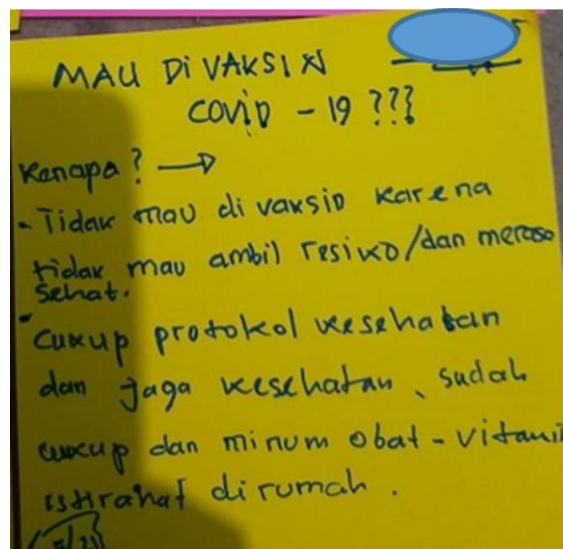 MAU DI VAKSIN
COVID - 19 ???
Kenapa? →
- Tidak mau di vaksin karena
tidak mau ambil resiko/dan merasa
sehat.
- Cukup protokol kesehatan
dan jaga kesehatan, sudah
cukup dan minum obat - vitamin
istirahat dirumah.